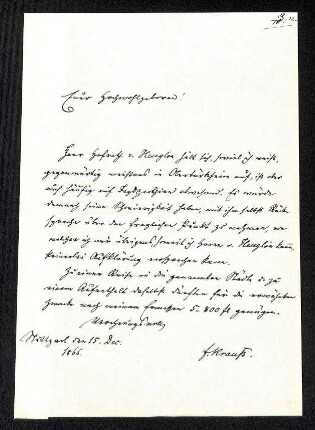 Euer Hochwohlgeboren!
Herr Hofrath v. Heuglin hält sich, soviel ich weiß,
gegenwärtig meistens in Oberkirchheim auf, ist aber
auch häufig auf Jagdparthien abwesend. Es würde
demnach seine Schwierigkeit haben, mit ihm selbst Rück-
sprache über den fraglichen Punkt zu nehmen, von
welcher ich mir übrigens soweit ich Herrn v. Heuglin kenne,
keinerlei Aufklärung versprechen kann.
Zu einer Reise in die genannten Städte &
einem Aufenthalt daselbst dürften für die erwähnten
Zwecke nach meinem Ermessen 5-800 fl. genügen.
Verehrungsvollst
Stuttgart den 15. Dec.
1866.
F. Krauß.